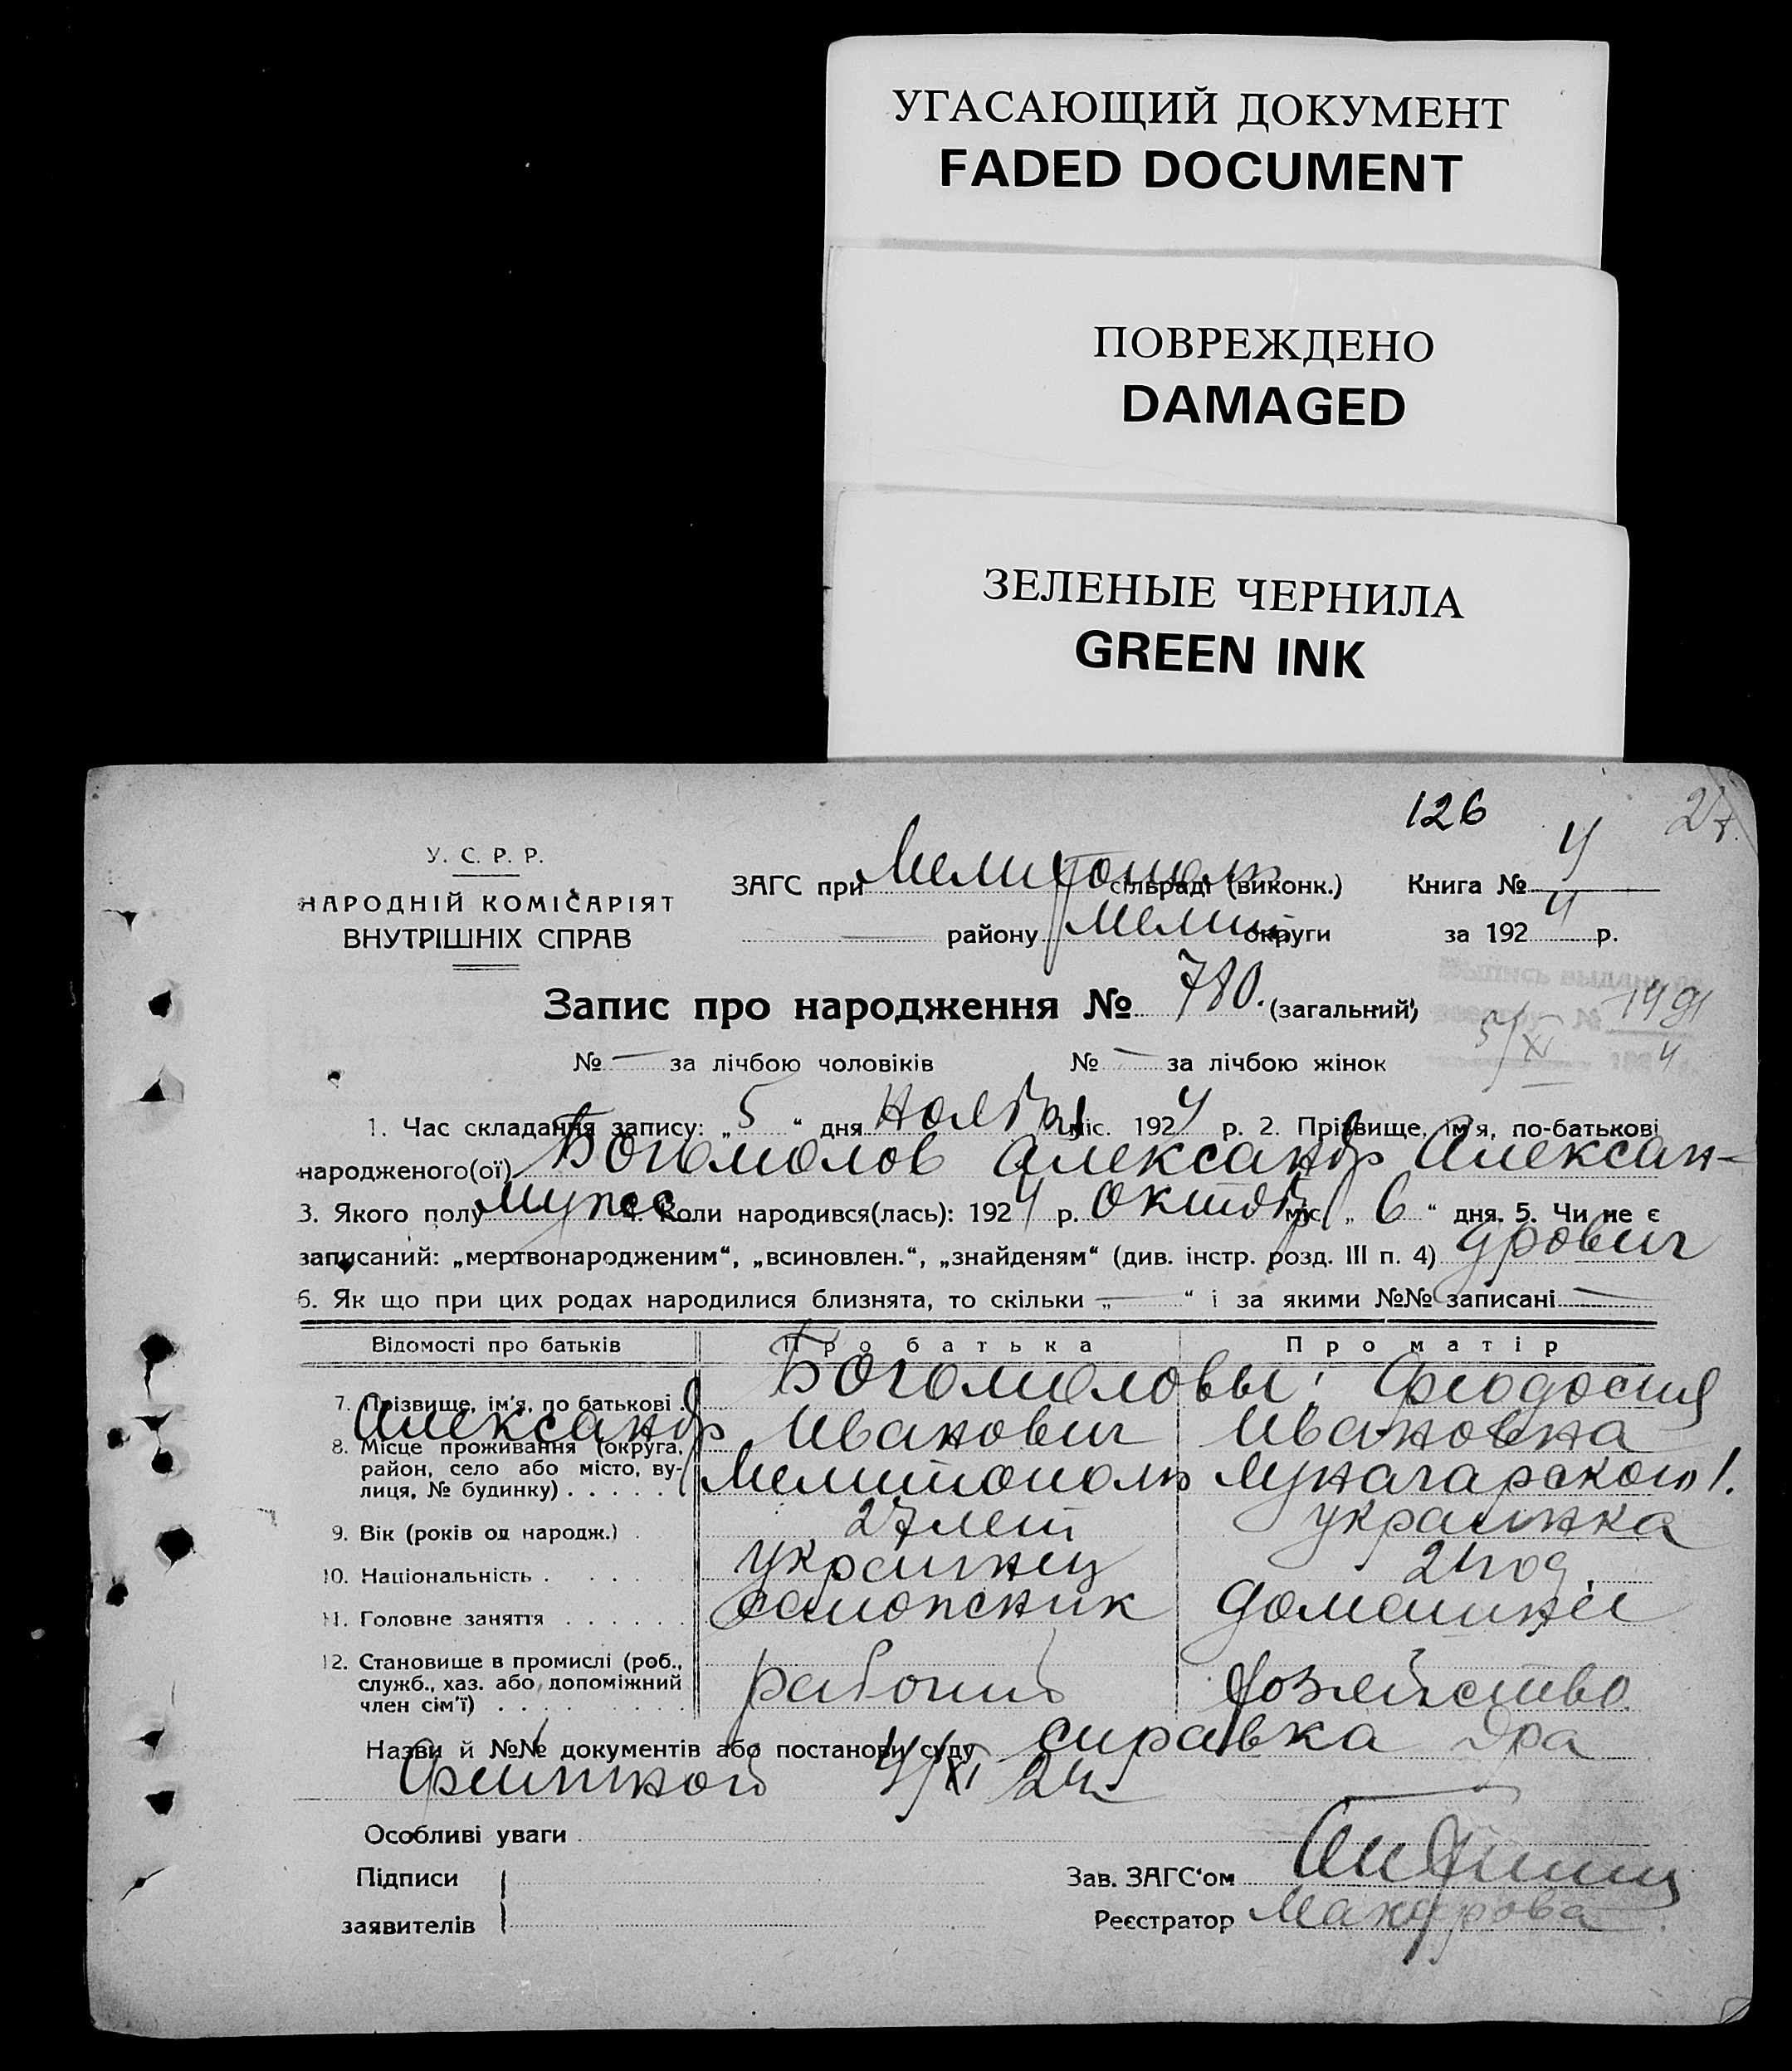 УГАСАЮЩИЙ ДОКУМЕНТ
FADED DOCUMENT
ПОВРЕЖДЕНО
DAMAGED
ЗЕЛЕНЫЕ ЧЕРНИЛА
GREEN INK
126
24.
У. С. Р. Р.
НАРОДНІЙ КОМІСАРІЯТ
ВНУТРІШНІХ СПРАВ
ЗАГС при Мелитополь сільраді (виконк.) Книга № 4
— району Мелит округи за 1924 р.
Запис про народження № 780. (загальний)
№ — за лічбою чоловіків № — за лічбою жінок
5/XI 4
1. Час складання запису: „5“ дня Ноября міс. 1924 р. 2. Прізвище, ім'я, по-батькові
народженого(ої) Богомолов Александр Алексан-
3. Якого полу мужс 4. Коли народився(лась): 1924 р. Октябр міс. „6“ дня. 5. Чи не є
записаний: „мертвонародженим“, „всиновлен.“, „знайденям“ (див. інстр. розд. III п. 4) дрович
6. Як що при цих родах народилися близнята, то скільки „—“ і за якими №№ записані —
Відомості про батьків Про батька Про матір
7. Прізвище, ім'я, по батькові . Богомоловы: Феодосия
Александр Иванович Ивановна
8. Місце проживання (округа, район, село або місто, ву-
лиця, № будинку) . . . . . Мелитополь Луначарского 1.
9. Вік (років од народж.) . 27 лет украинка
10. Національність . . . . . украинец 24 год.
11. Головне заняття . . . . . . сапожник домашнее
12. Становище в промислі (роб.,
служб., хаз. або допоміжний
член сім'ї) . . . . . . . . рабочий хозяйство.
Назви й №№ документів або постанови суду справка Дра
4/XI 24
Особливі уваги
Підписи
заявителів
Зав. ЗАГС'ом
Реєстратор